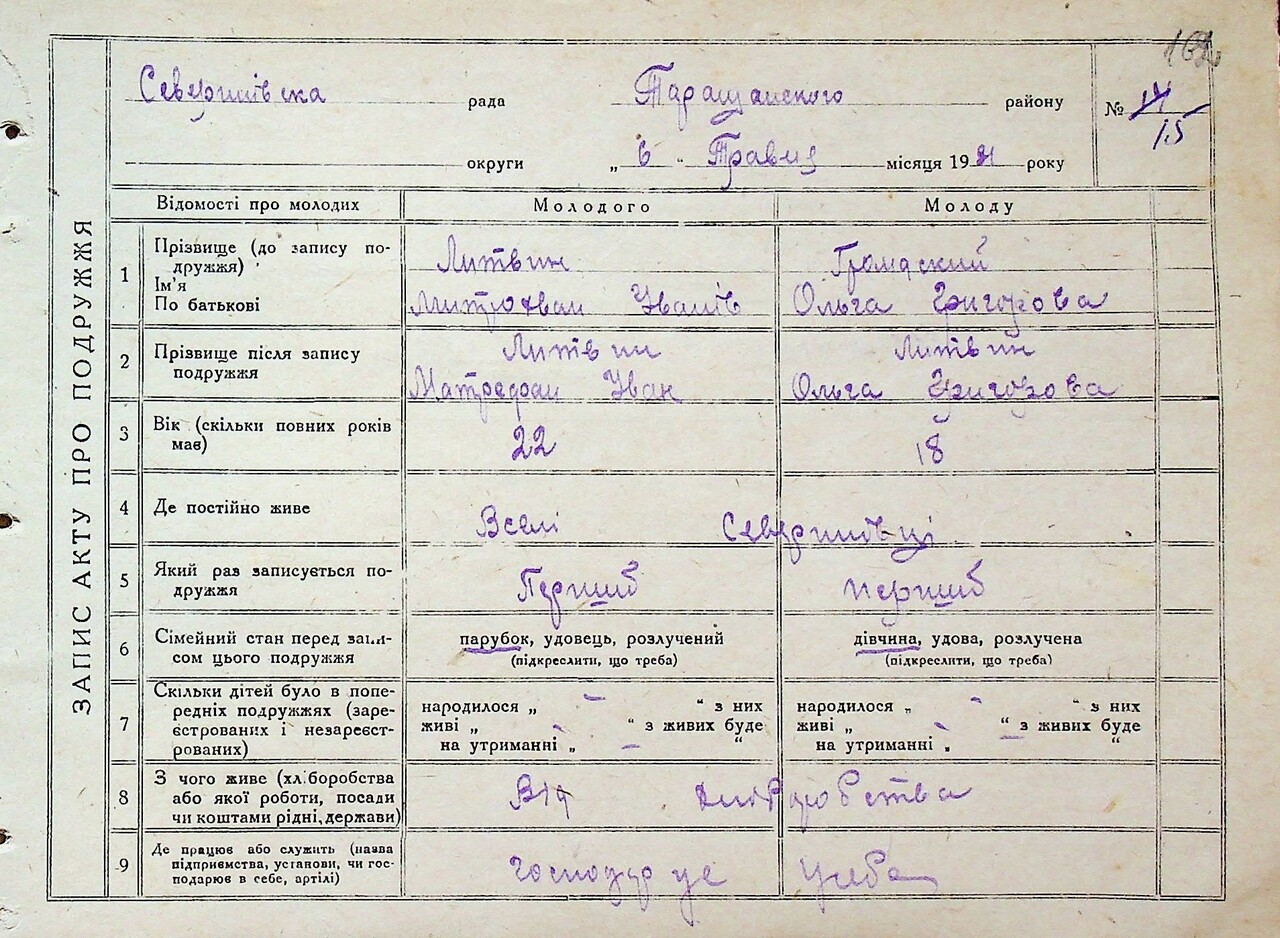 162
Северинівска рада Таращанского району № 14
15
округи „ 6 " Травня місяця 1931 року
ЗАПИС АКТУ ПРО ПОДРУЖЖЯ
Відомості про молодих Молодого Молоду
1 Прізвище (до запису по-
дружжя)
Ім'я
По батькові
Литвин
Митрохван Уванів
Громадский
Ольга Григорова
2 Прізвище після запису
подружжя
Литвин
Матредфан Уван
Литвин
Ольга Григорова
3 Вік (скільки повних років
мав)
22
18
4 Де постійно живе
Вселі Северинівці
5 Який раз записується по-
дружжя
Перший
перший
6 Сімейний стан перед запи-
сом цього подружжя
парубок, удовець, розлучений
(підкреслити, що треба)
дівчина, удова, розлучена
(підкреслити, що треба)
7 Скільки дітей було в попе-
редніх подружжях (заре-
єстрованих і незареєст-
рованих)
народилося „ - " з них
живі „ - " з живих буде
на утриманні „ - "
народилося „ - " з них
живі „ - " з живих буде
на утриманні „ - "
8 З чого живе (хліборобства
або якої роботи, посади
чи коштами рідні, держави)
Від хліборобства
9 Де працює або служить (назва
підприємства, установи, чи гос-
подарює в себе, артілі)
господарує усеба